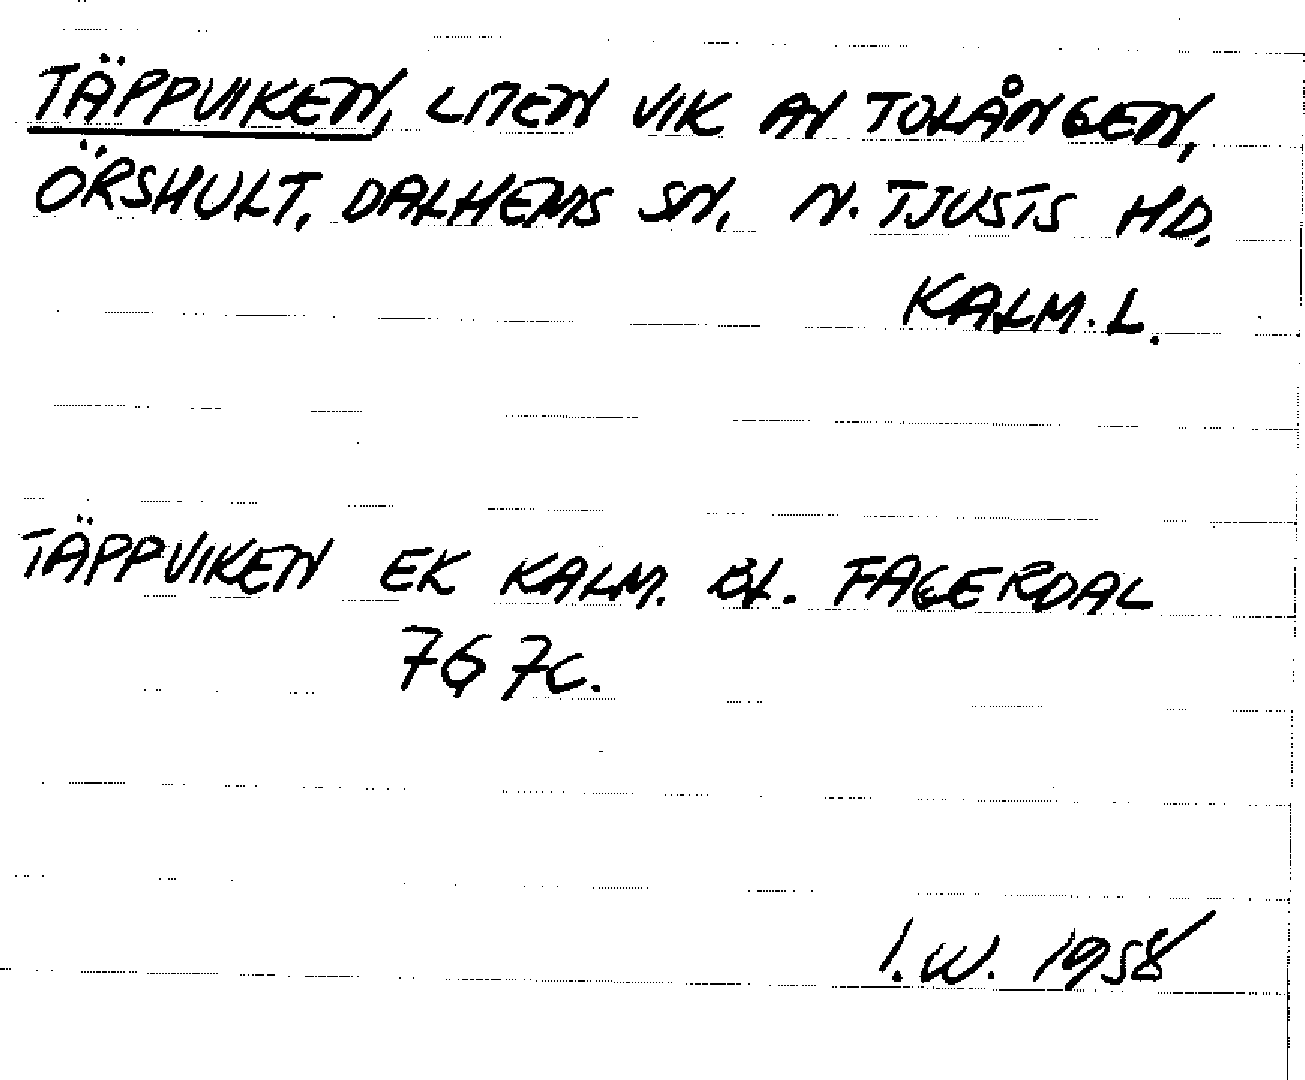 TÄPPVIKEN, LITEN VIK AV TOLÅNGEN,
ÖRSHULT, DALHEMS SN, N. TJUSTS HD,
KALM. L.
TÄPPVIKEN EK KALM. BL. FAGERDAL
767c.
I.W. 1958